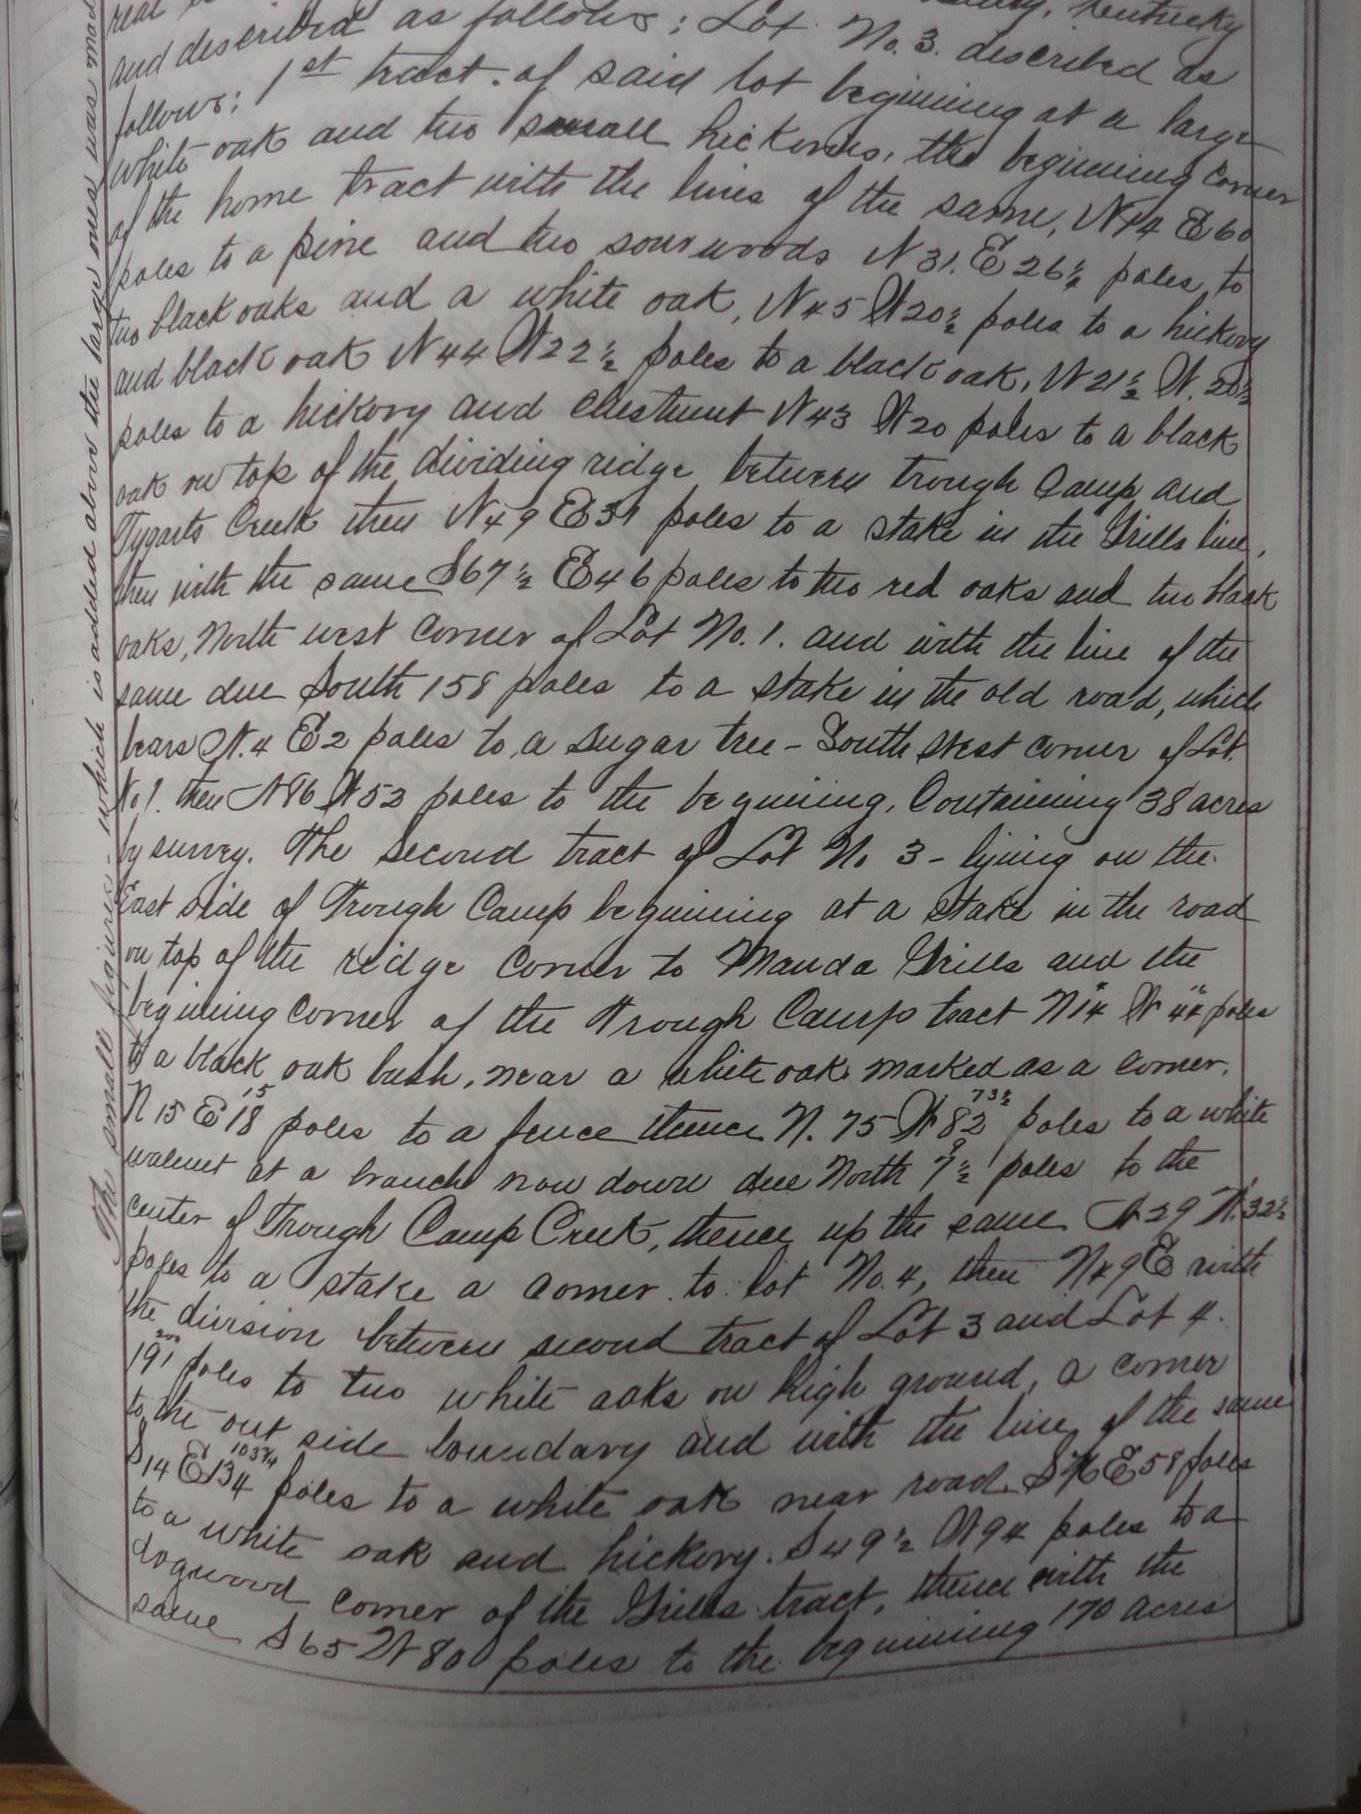 real
Kentucky
and described as follows; Lot No. 3. described as
follows: 1st tract. of said lot beginning at a large
white oak and two small hickories, the beginning corner
of the home tract with the lines of the same, N44 E60
poles to a pine and two sourwoods N31. E26½ poles to
two black oaks and a white oak, N45 W20½ poles to a hickory
and black oak N44 W22½ poles to a black oak, N21½ W. 20½
poles to a hickory and chestnut N43 W20 poles to a black
oak on top of the dividing ridge between trough Camp and
Tygarts Creek then N49 E31 poles to a stake in the Grills line,
then with the same S67½ E46 poles to two red oaks and two black
oaks, North west corner of Lot No. 1. and with the line of the
same due South 158 poles to a stake in the old road, which
bears N.4 E2 poles to a sugar tree - South West corner of Lot
No 1. then N86 W52 poles to the beginning, Containing 38 acres
by survey. The second tract of Lot No 3 - lying on the
East side of Trough Camp beginning at a stake in the road
on top of the ridge corner to Manda Grills and the
beginning corner of the Trough Camp tract N14 W 44 poles
to a black oak bush, near a white oak marked as a corner.
N15 E 18 15 poles to a fence thence N. 75 W 82 73½ poles to a white
walnut at a branch now down due North 7½ 9 poles to the
center of Trough Camp Creek, thence up the same N29 W.32½
poles to a stake a corner to lot No. 4, then N49 E with
the division between second tract of Lot 3 and Lot 4.
191 200 poles to two white oaks on high ground, a corner
to the out side boundary and with the line of the same
S14 E 134 103¾ poles to a white oak near road. E58 poles
to a white oak and hickory. S49½ W94 poles to a
dogwood corner of the Grills tract, thence with the
same S65 W80 poles to the beginning 170 acres
The small figures - which is added above the large ones was made